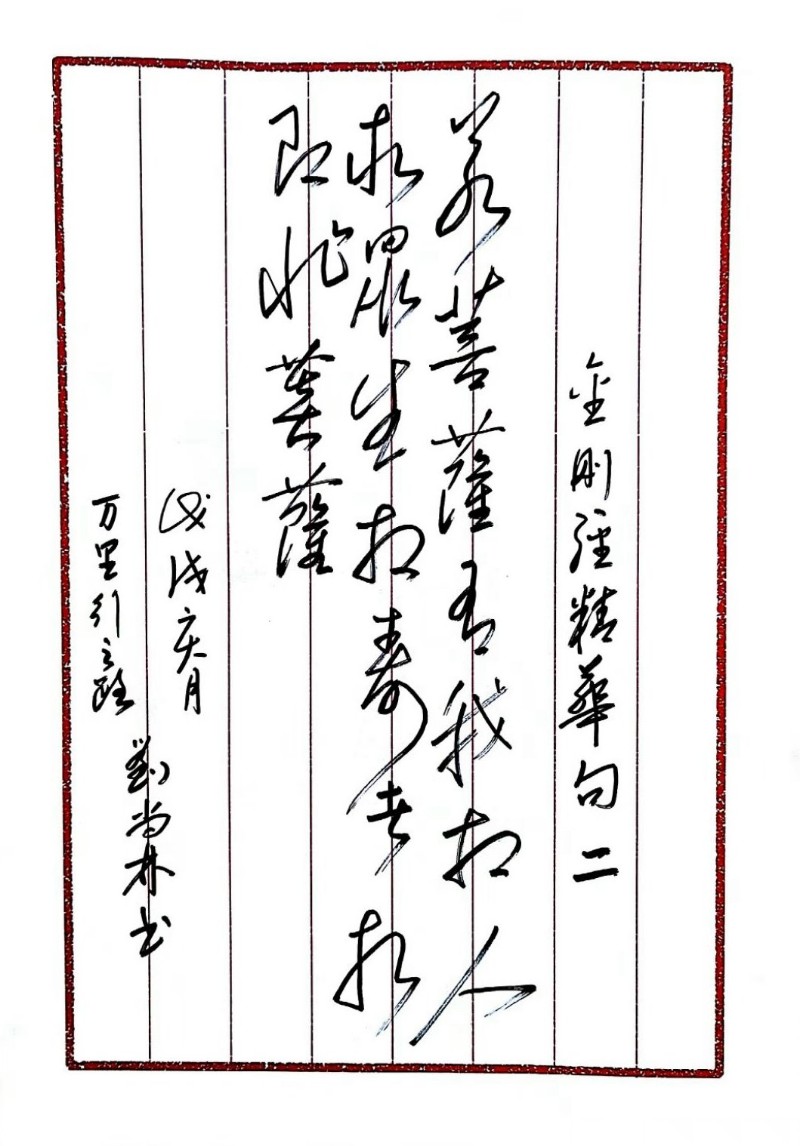 金刚经精华句二
若菩薩有我相人
相眾生相壽者相
即非菩薩
戊戌庆月
万里行之路
劉尚林书